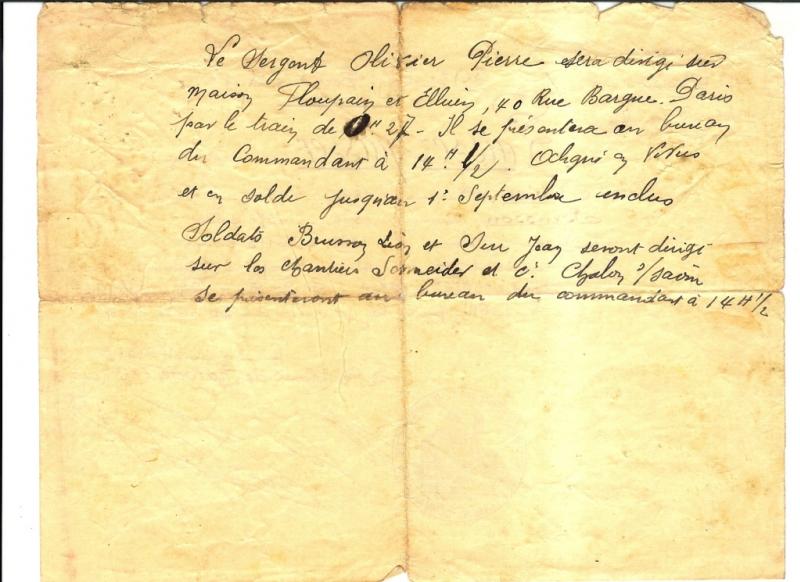 Le Sergent Olivier Pierre sera dirigé sur
maison Floupain et Ellien, 40 Rue Bargue. Paris
par le train de 0H 27 - Il se présentera au bureau
du Commandant à 14H 1/2. en Vivres
et en solde jusqu'au 1er Septembre inclus
Soldats Brusson Léon et Jean seront dirigé
sur les chantiers Schneider et Cie. Chalon s/Saône
se présenteront au bureau du commandant à 14H 1/2